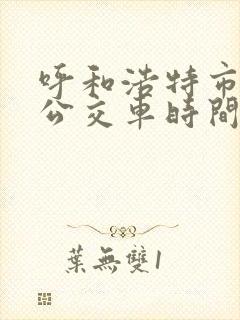 呼和浩特市
公交车時間
葉無雙1